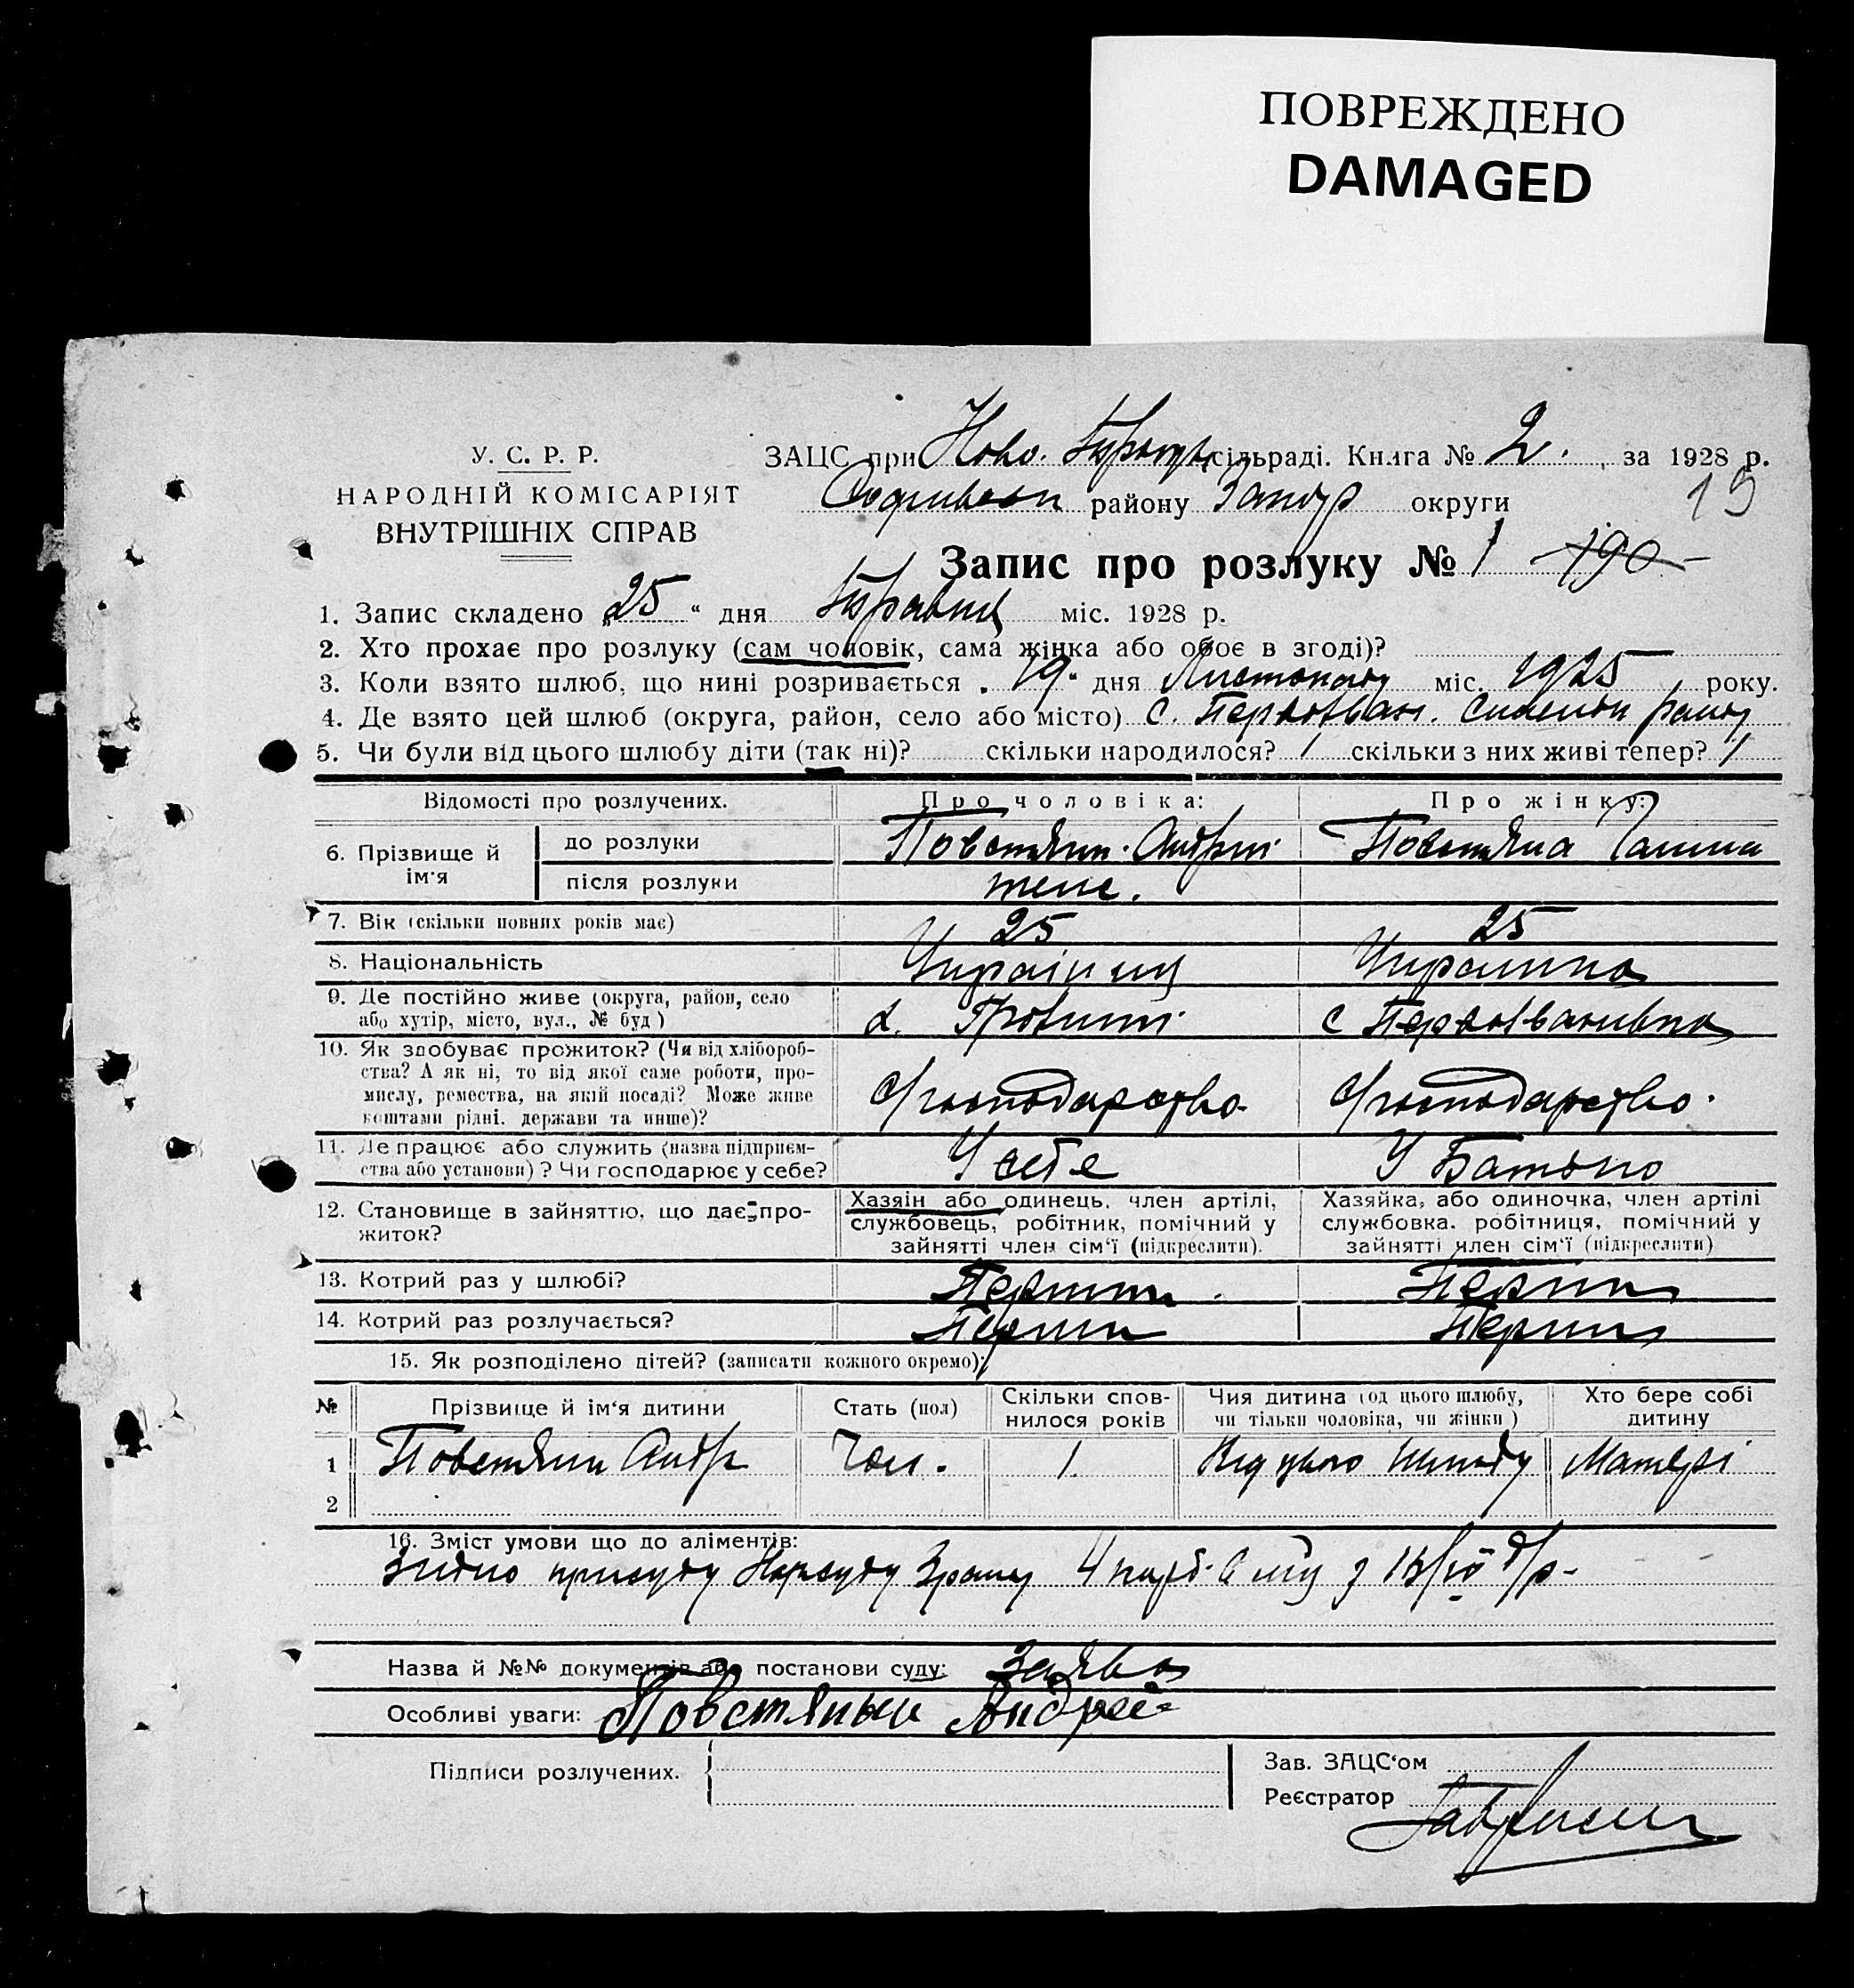 ПОВРЕЖДЕНО
DAMAGED
У. С. Р. Р.
НАРОДНІЙ КОМІСАРІЯТ
ВНУТРІШНІХ СПРАВ
ЗАЦС при Ново. сільраді. Книга № 2. , за 1928 р.
району Запор округи
19
Запис про розлуку № 1 190
1. Запис складено „25“ дня Травня міс. 1928 р.
2. Хто прохає про розлуку (сам чоловік, сама жінка або обоє в згоді)?
3. Коли взято шлюб, що нині розривається „19“ дня Листопаду міс. 1925 року.
4. Де взято цей шлюб (округа, район, село або місто) с.
5. Чи були від цього шлюбу діти (так ні)? скільки народилося? 1 скільки з них живі тепер? 1
Відомості про розлучених. Про чоловіка: Про жінку:
6. Прізвище й ім'я
до розлуки Повстяний Андрій Повстяна Ганна
після розлуки теж.
7. Вік (скільки повних років має) 25 25
8. Національність Українец Украинка
9. Де постійно живе (округа, район, село
або хутір, місто, вул., № буд)
с
10. Як здобуває прожиток? (Чи від хлібороб-
ства? А як ні, то від якої саме роботи, про-
мислу, ремества, на якій посаді? Може живе
коштами рідні. держави та инше)?
Господарство Господарство.
11. Де працює або служить (назва підприєм-
ства або установи)? Чи господарює у себе?
У себе У Батько
12. Становище в зайняттю, що дає про-
житок?
Хазяїн або одинець, член артілі,
службовець, робітник, помічний у
зайнятті член сім'ї (підкреслити).
Хазяйка, або одиночка, член артілі
службовка. робітниця, помічний у
зайнятті член сім'ї (підкреслити)
13. Котрий раз у шлюбі?
14. Котрий раз розлучається?
15. Як розподілено дітей? (записати кожного окремо):
№ Прізвище й ім'я дитини Стать (пол) Скільки спов-нилося років Чия дитина (од цього шлюбу, чи тільки чоловіка, чи жінки) Хто бере собі дитину
1 Повстяний Андр Чол. 1. Від цього шлюбу Матері
2
16. Зміст умови що до аліментів:
Згідно присуду Нарсуду
Назва й №№ документів або постанови суду: Заява
Особливі уваги: Повстяный Андрей
Підписи розлучених.
Зав. ЗАЦС'ом
Реєстратор